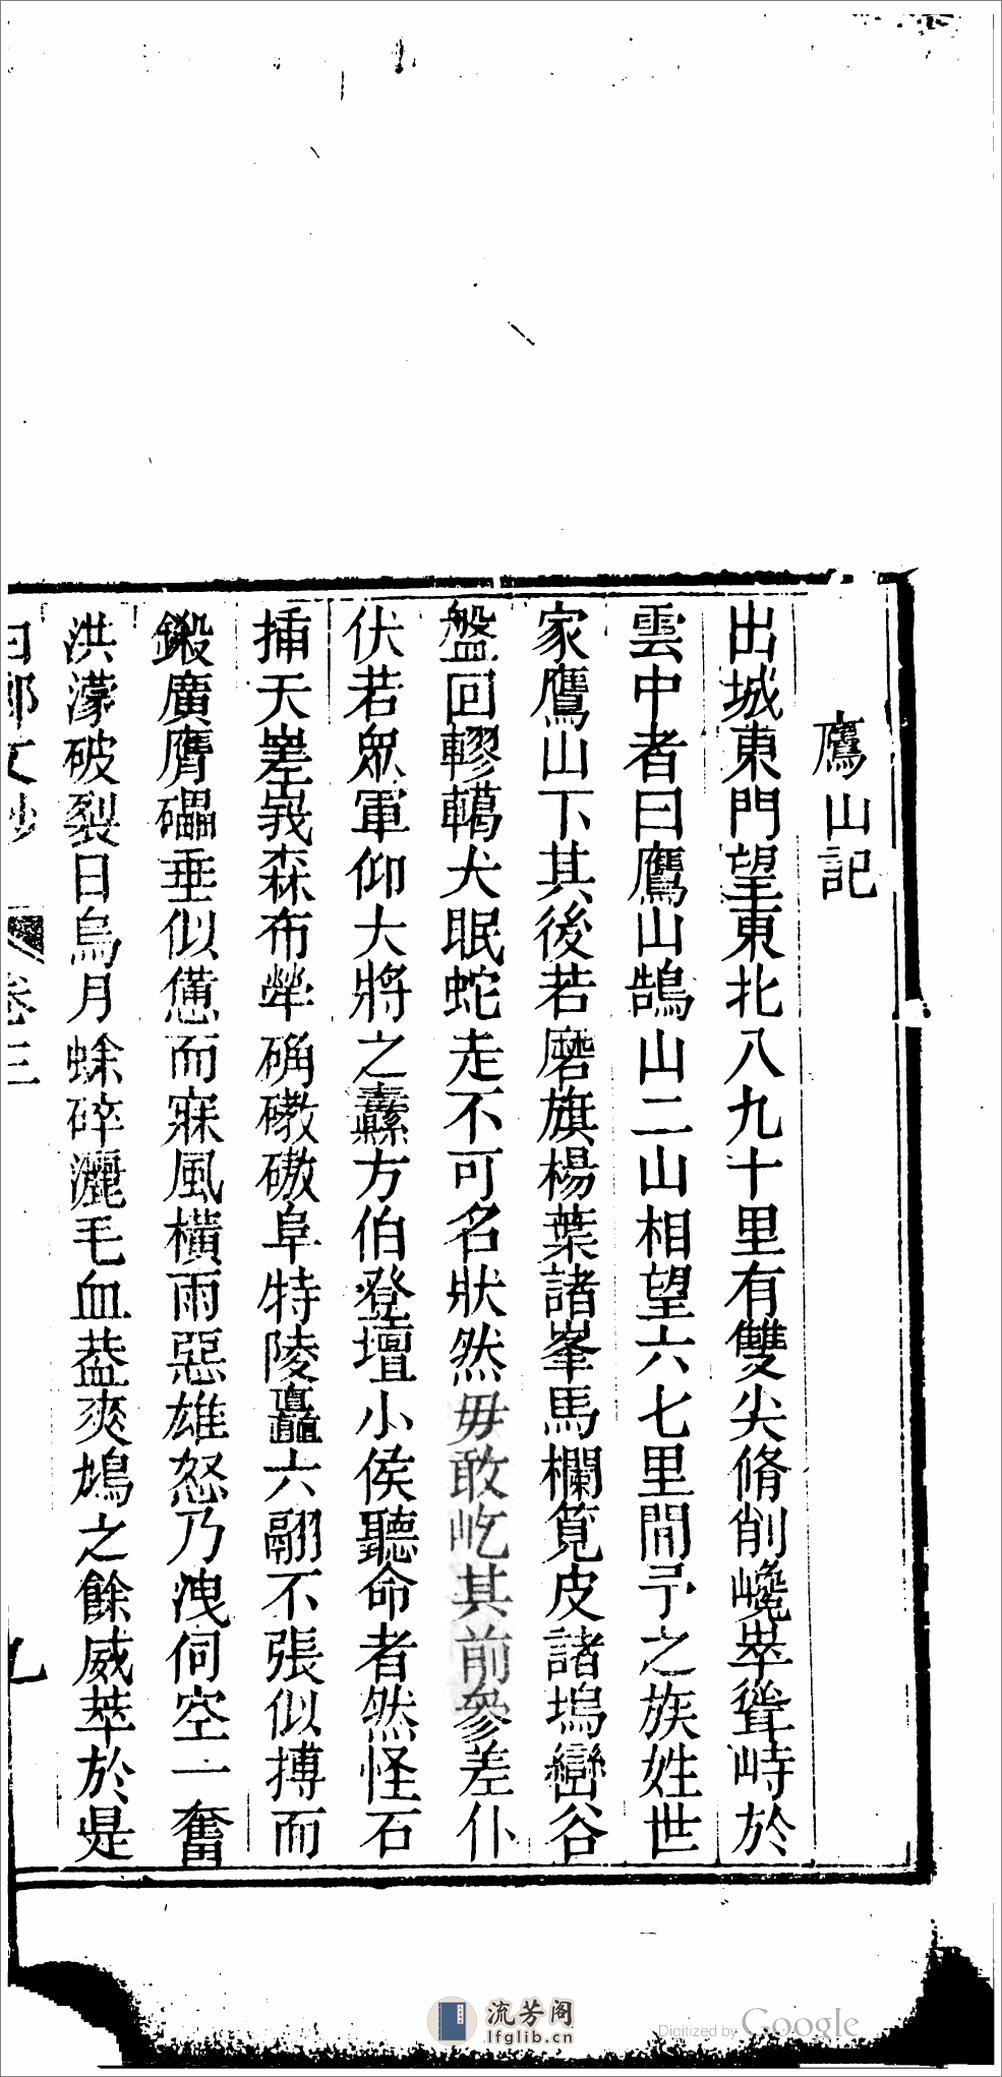 鷹山記
出城東門望東北八九十里有雙尖脩削巉崒聳峙於
雲中者曰鷹山鵠山二山相望六七里間予之族姓世
家鷹山下其後若磨旗楊葉諸峯馬欄筧皮諸塢巒谷
盤回轇轕犬眠蛇走不可名狀然毋敢屹其前參差仆
伏若眾軍仰大將之纛方伯登壇小侯聽命者然怪石
插天峚峩森布犖确礉磝阜特陵矗六翮不張似摶而
鎩廣膺礧垂似憊而寐風橫雨惡雄怒乃洩伺空一奮
洪濛破裂日烏月蜍碎灑毛血葢爽鳩之餘威萃於是
白 文抄 卷三 九
流芳阁
lfglib.cn
Digitized by Google